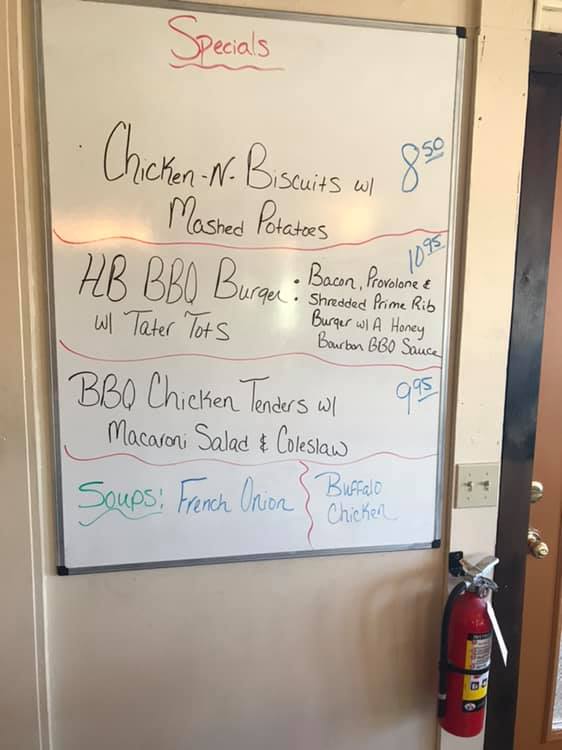 Specials
Chicken-N-Biscuits w/ 8.50
Mashed Potatoes
HB BBQ Burger: 10.95
w/ Tater Tots
Bacon, Provolone &
Shredded Prime Rib
Burger w/ A Honey
Bourbon BBQ Sauce
BBQ Chicken Tenders w/ 9.95
Macaroni Salad & Coleslaw
Soups: French Onion
Buffalo
Chicken